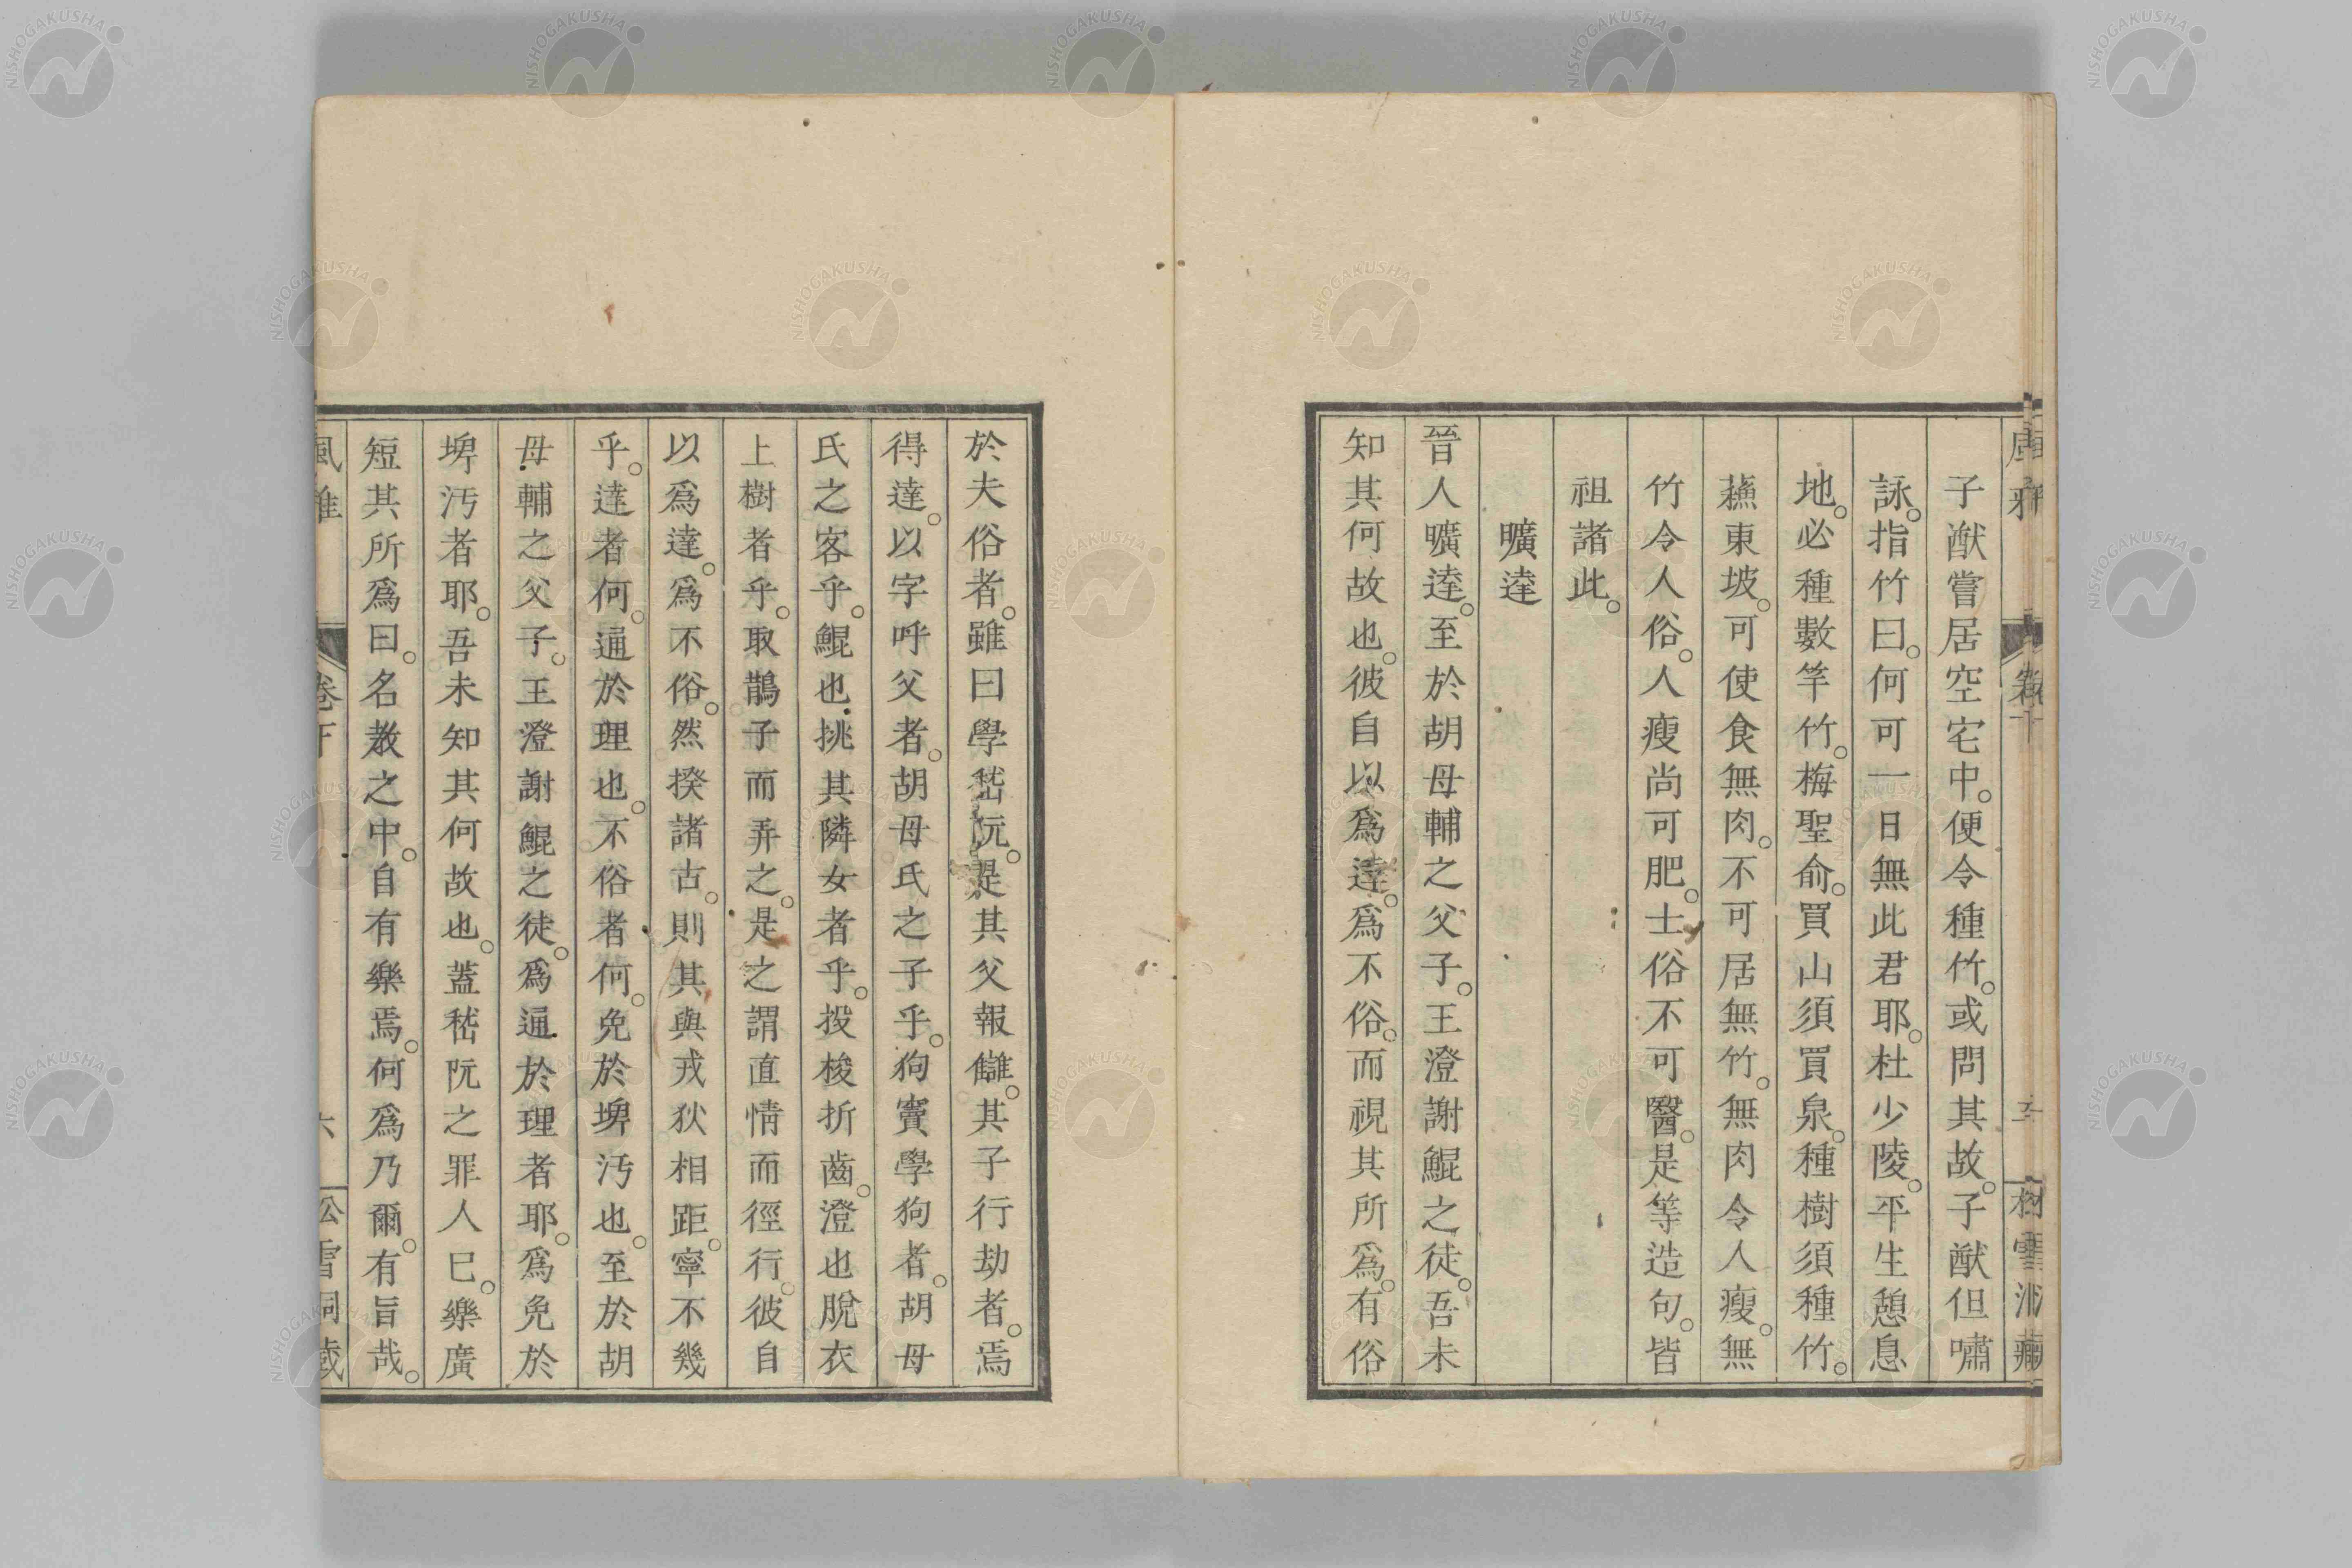 子猷嘗居空宅中。便令種竹。或問其故。子猷但嘯
詠。指竹曰。何可一日無此君耶。杜少陵。平生憩息
地。必種數竿竹。梅聖俞。買山須買泉。種樹須種竹。
蘓東坡。可使食無肉。不可居無竹。無肉令人瘦。無
竹令人俗。人瘦尚可肥。士俗不可醫。是等造句。皆
祖諸此。
曠達
晉人曠達。至於胡母輔之父子。王澄謝鯤之徒。吾未
知其何故也。彼自以爲達。爲不俗。而視其所爲。有俗
於夫俗者。雖曰學嵆阮。是其父報讎。其子行劫者。焉
得達。以字呼父者。胡母氏之子乎。狗竇學狗者。胡母
氏之客乎。鯤也挑其隣女者乎。投梭折齒。澄也脫衣
上樹者乎。取鵲子而弄之。是之謂直情而徑行。彼自
以爲達。爲不俗。然揆諸古。則其與戎狄相距。寧不幾
乎。達者何。通於理也。不俗者何。免於埤汚也。至於胡
母輔之父子。王澄謝鯤之徒。爲通於理者耶。爲免於
埤汚者耶。吾未知其何故也。蓋嵇阮之罪人已。樂廣
短其所爲曰。名敎之中。自有樂焉。何爲乃爾。有旨哉。
風雅 卷下 六